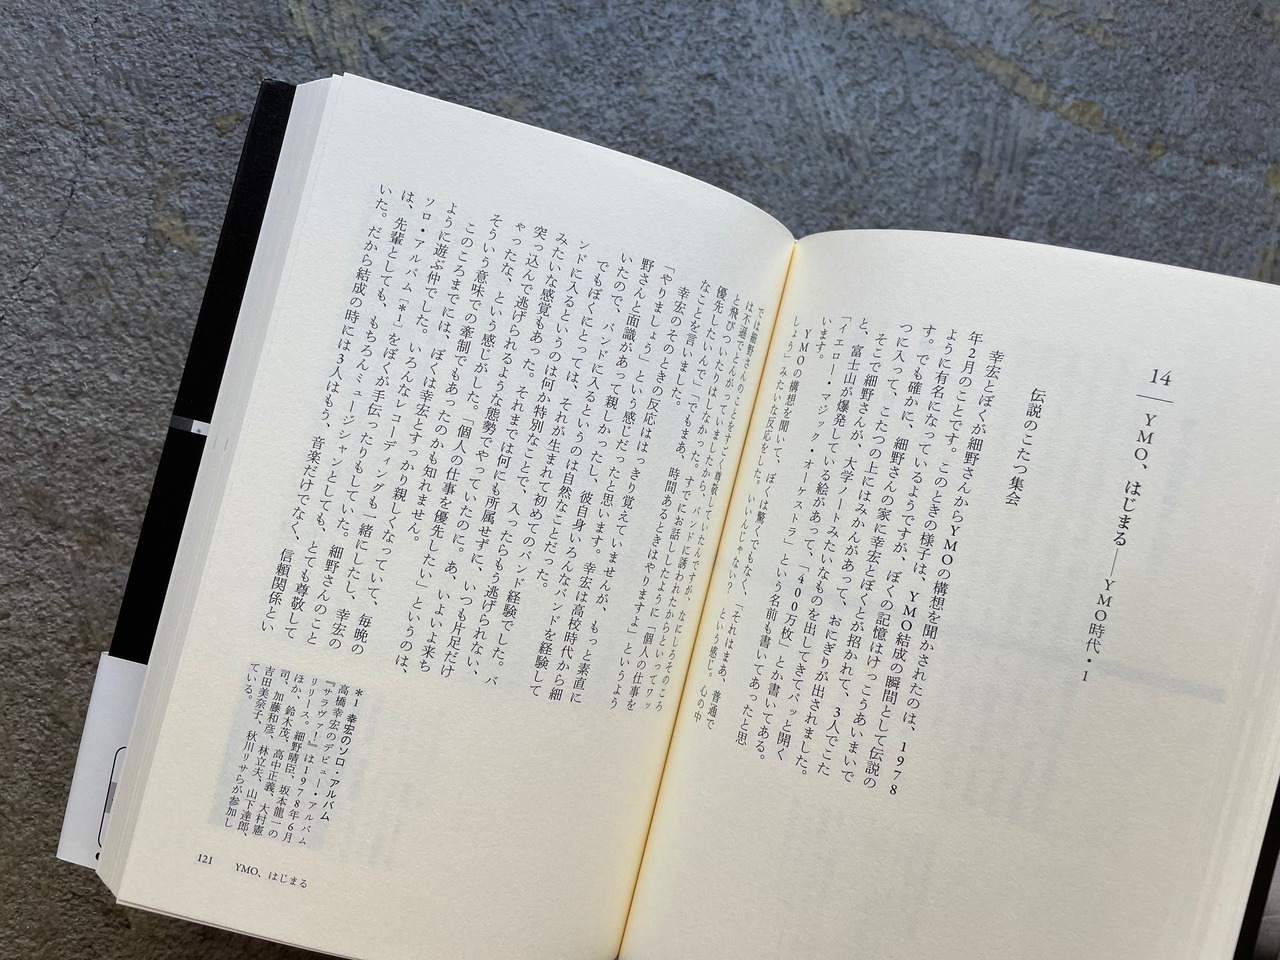 14 ― YMO、はじまる――YMO時代・1
伝説のこたつ集会
幸宏とぼくが細野さんからYMOの構想を聞かされたのは、1978
年2月のことです。このときの様子は、YMO結成の瞬間として伝説の
ように有名になっているようですが、ぼくの記憶はけっこうあいまいで
す。でも確かに、細野さんの家に幸宏とぼくとが招かれて、3人でこた
つに入って、こたつの上にはみかんがあって、おにぎりが出されました。
そこで細野さんが、大学ノートみたいなものを出してきてパッと開く
と、富士山が爆発している絵があって、「400万枚」とか書いてある。
「イエロー・マジック・オーケストラ」という名前も書いてあったと思
います。
YMOの構想を聞いて、ぼくは驚くでもなく、「それはまあ、普通で
しょう」みたいな反応をした。いいんじゃないの、という感じ。心の中
では細野さんのことをすごく尊敬していたんですが、なにしろそのころ
は不遜でとんがっていましたから、バンドに誘われたからといってワッ
と飛びついたりはしなかった。すでにお話ししたように「個人の仕事を
優先したいんで」「でもまあ、時間あるときはやりますよ」というよう
なことを言いました。
幸宏のそのときの反応ははっきり覚えていませんが、もっと素直に
「やりましょう」という感じだったと思います。幸宏は高校時代から細
野さんと面識があって親しかったし、彼自身いろんなバンドを経験して
いたので、バンドに入るというのは自然なことだった。
でもぼくにとっては、それが生まれて初めてのバンド経験でした。バ
ンドに入るというのは何か特別なことで、入ったらもう逃げられない、
みたいな感覚もあった。それまでは何にも所属せずに、いつも片足だけ
突っ込んで逃げられるような態勢でやっていたのに。あ、いよいよ来ち
ゃったな、という感じがした。「個人の仕事を優先したい」というのは、
そういう意味での牽制でもあったのかも知れません。
このころまでには、ぼくは幸宏とすっかり親しくなっていて、毎晩の
ように遊ぶ仲でした。いろんなレコーディングも一緒にしたし、幸宏の
ソロ・アルバム[*1]をぼくが手伝ったりもしていた。細野さんのこと
は、先輩としても、もちろんミュージシャンとしても、とても尊敬して
いた。だから結成の時には3人はもう、音楽だけでなく、信頼関係とい
*1 幸宏のソロ・アルバム
高橋幸宏のデビュー・アルバム
『サラヴァ!』は1978年6月
リリース。細野晴臣、坂本龍一の
ほか、鈴木茂、高中正義、大村憲
司、加藤和彦、林立夫、山下達郎、
吉田美奈子、秋川リサらが参加し
ている。
121 YMO、はじまる